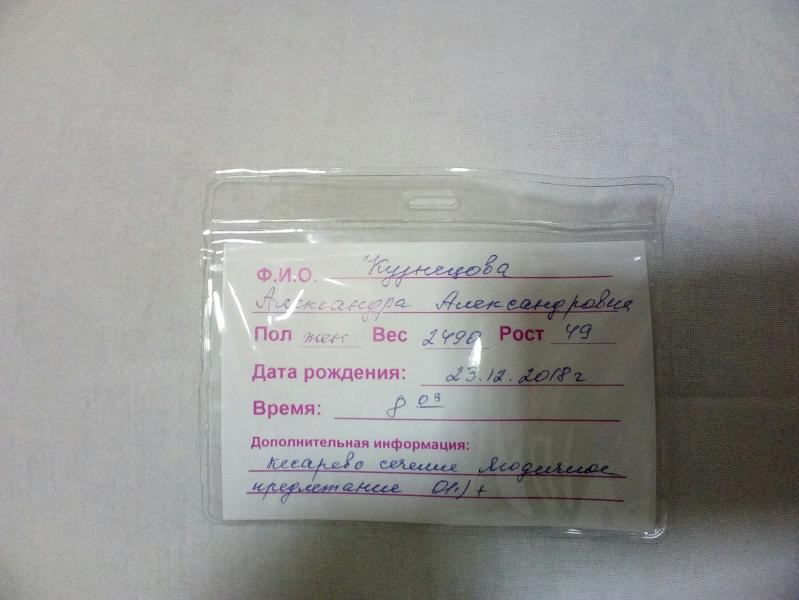 Ф.И.О. Кузнецова
Александра Александровна
Пол жен Вес 2490 Рост 49
Дата рождения: 23.12.2018 г
Время: 8 03
Дополнительная информация:
Кесарево сечение Ягодичное
предлежание 0(I) +